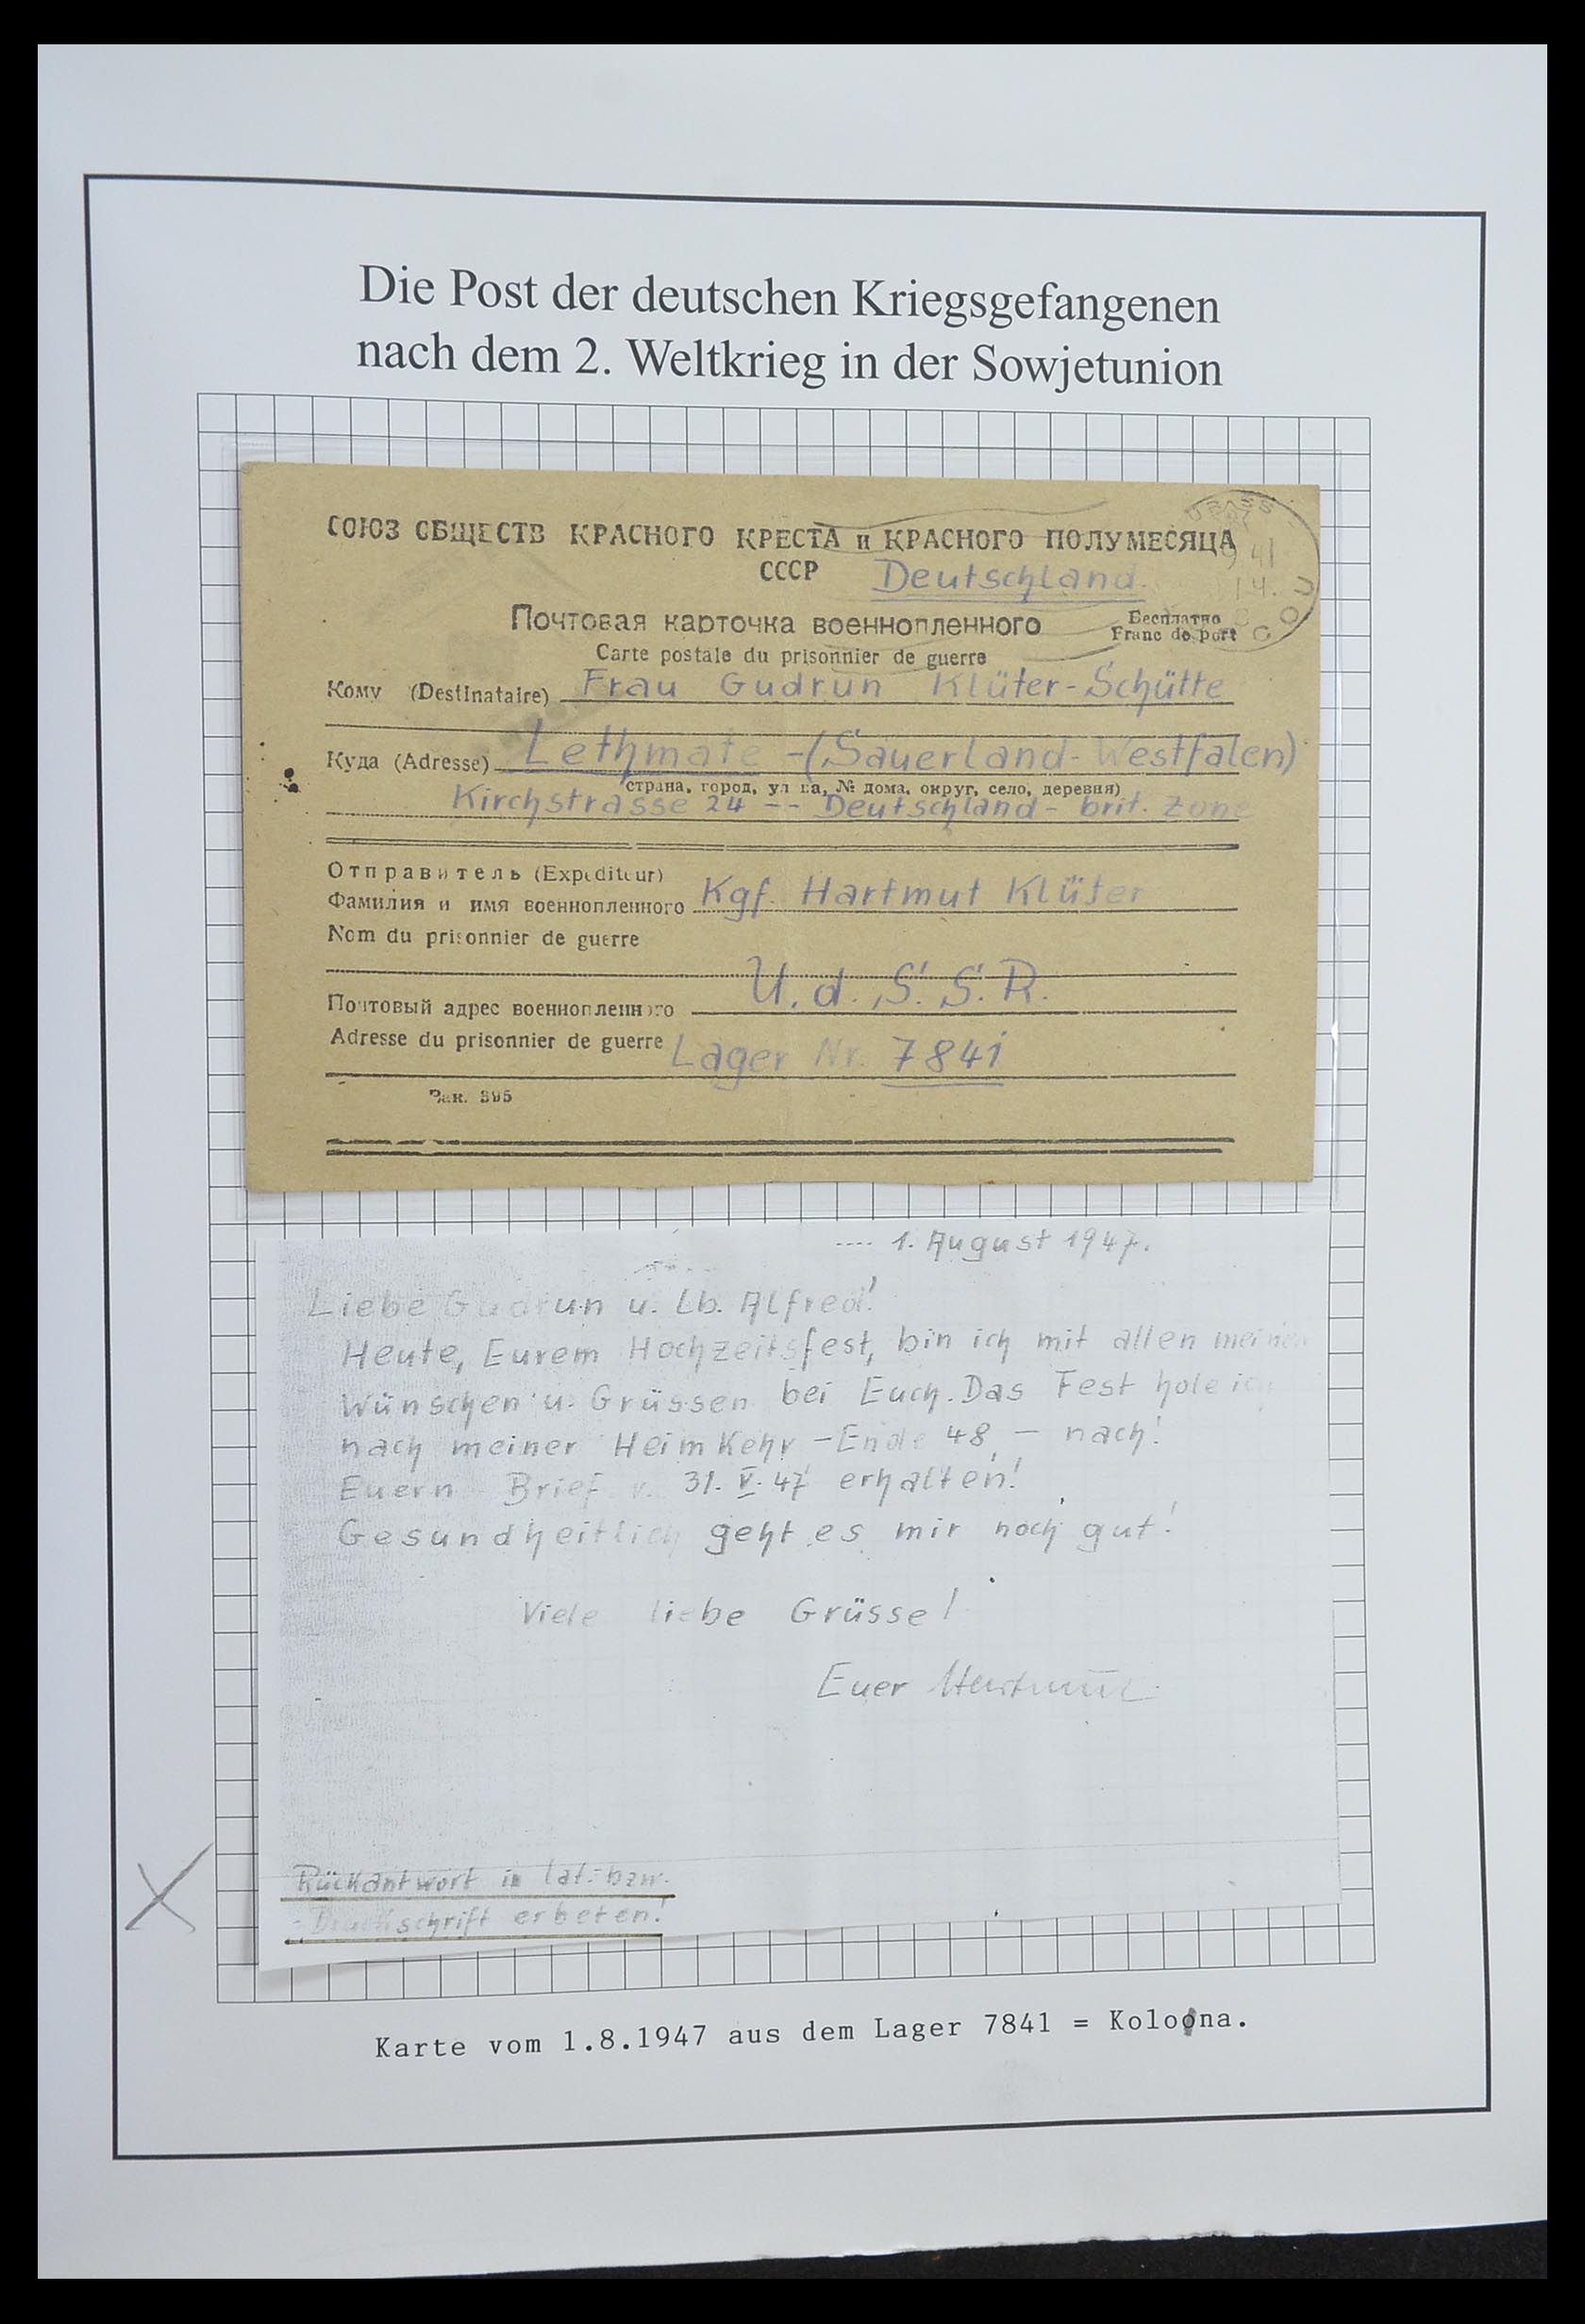 Die Post der deutschen Kriegsgefangenen
nach dem 2. Weltkrieg in der Sowjetunion
СОЮЗ ОБЩЕСТВ КРАСНОГО КРЕСТА и КРАСНОГО ПОЛУМЕСЯЦА
СССР Deutschland
Почтовая карточка военнопленного
Бесплатно
Franc de port
Carte postale du prisonnier de guerre
Кому (Destinataire) Frau Gudrun Klüter-Schütte
Куда (Adresse) Lethmate -(Sauerland-Westfalen)
страна, город, улица, № дома, округ, село, деревня)
Kirchstrasse 24 -- Deutschland - brit. Zone
Отправитель (Expediteur)
Фамилия и имя военнопленного Kgf. Hartmut Klüter
Nom du prisonnier de guerre
U.d.S.S.R.
Почтовый адрес военнопленного
Adresse du prisonnier de guerre Lager Nr. 7841
Зак. 395
---- 1. August 1947.
Liebe Gudrun u. Lb. Alfred!
Heute, Eurem Hochzeitsfest, bin ich mit allen meinen
Wünschen u. Grüssen bei Euch. Das Fest hole ich
nach meiner Heimkehr - Ende 48 - nach!
Euern Brief v. 31. V. 47 erhalten!
Gesundheitlich geht es mir noch gut!
Viele liebe Grüsse!
Euer Hartmut
Rückantwort in lat.- bzw.
Druckschrift erbeten!
Karte vom 1.8.1947 aus dem Lager 7841 = Kolomna.